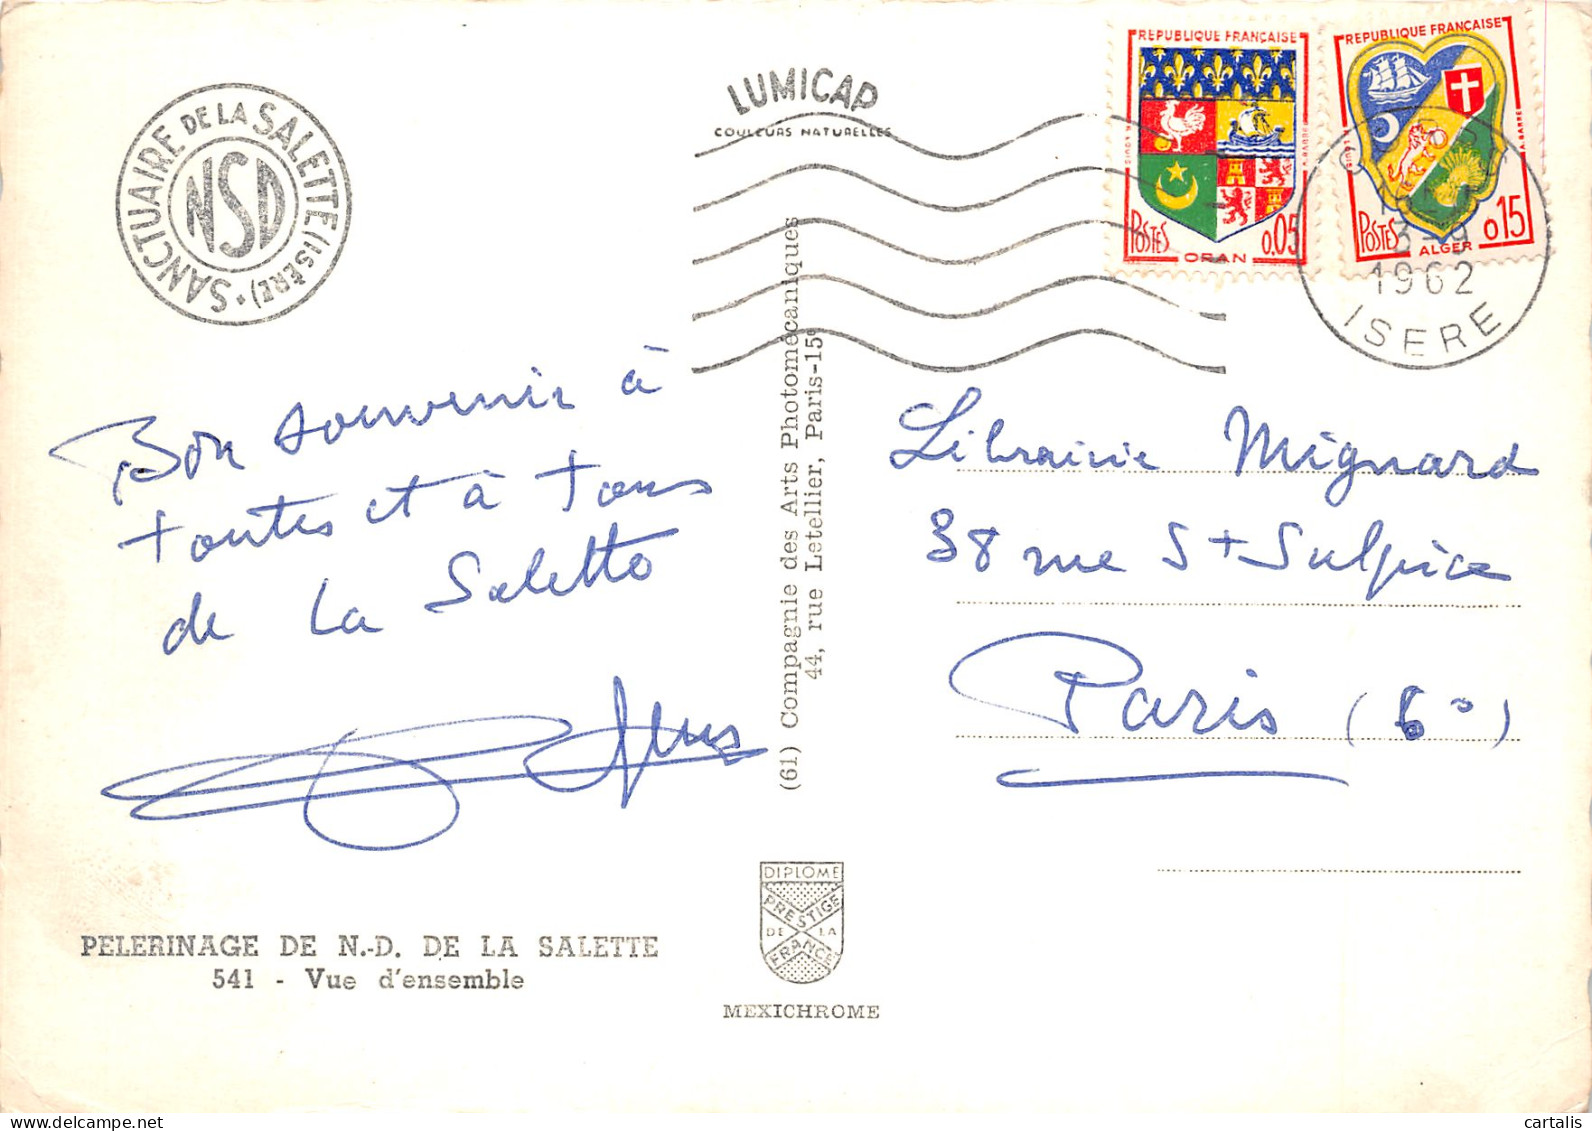 SANCTUAIRE DE LA SALETTE (ISÈRE) •
NSD
LUMICAP
COULEURS NATURELLES
REPUBLIQUE FRANÇAISE
POSTES
0.05
ORAN
REPUBLIQUE FRANÇAISE
POSTES
0.15
ALGER
1962
ISERE
Bon souvenir à
toutes et à tous
de La Salette
Librairie Mignard
38 rue St Sulpice
Paris (6°)
(61) Compagnie des Arts Photomécaniques
44, rue Letellier, Paris-15e
PELERINAGE DE N.-D. DE LA SALETTE
541 - Vue d'ensemble
DIPLOME
PRESTIGE
DE LA
FRANCE
MEXICHROME
cartalis